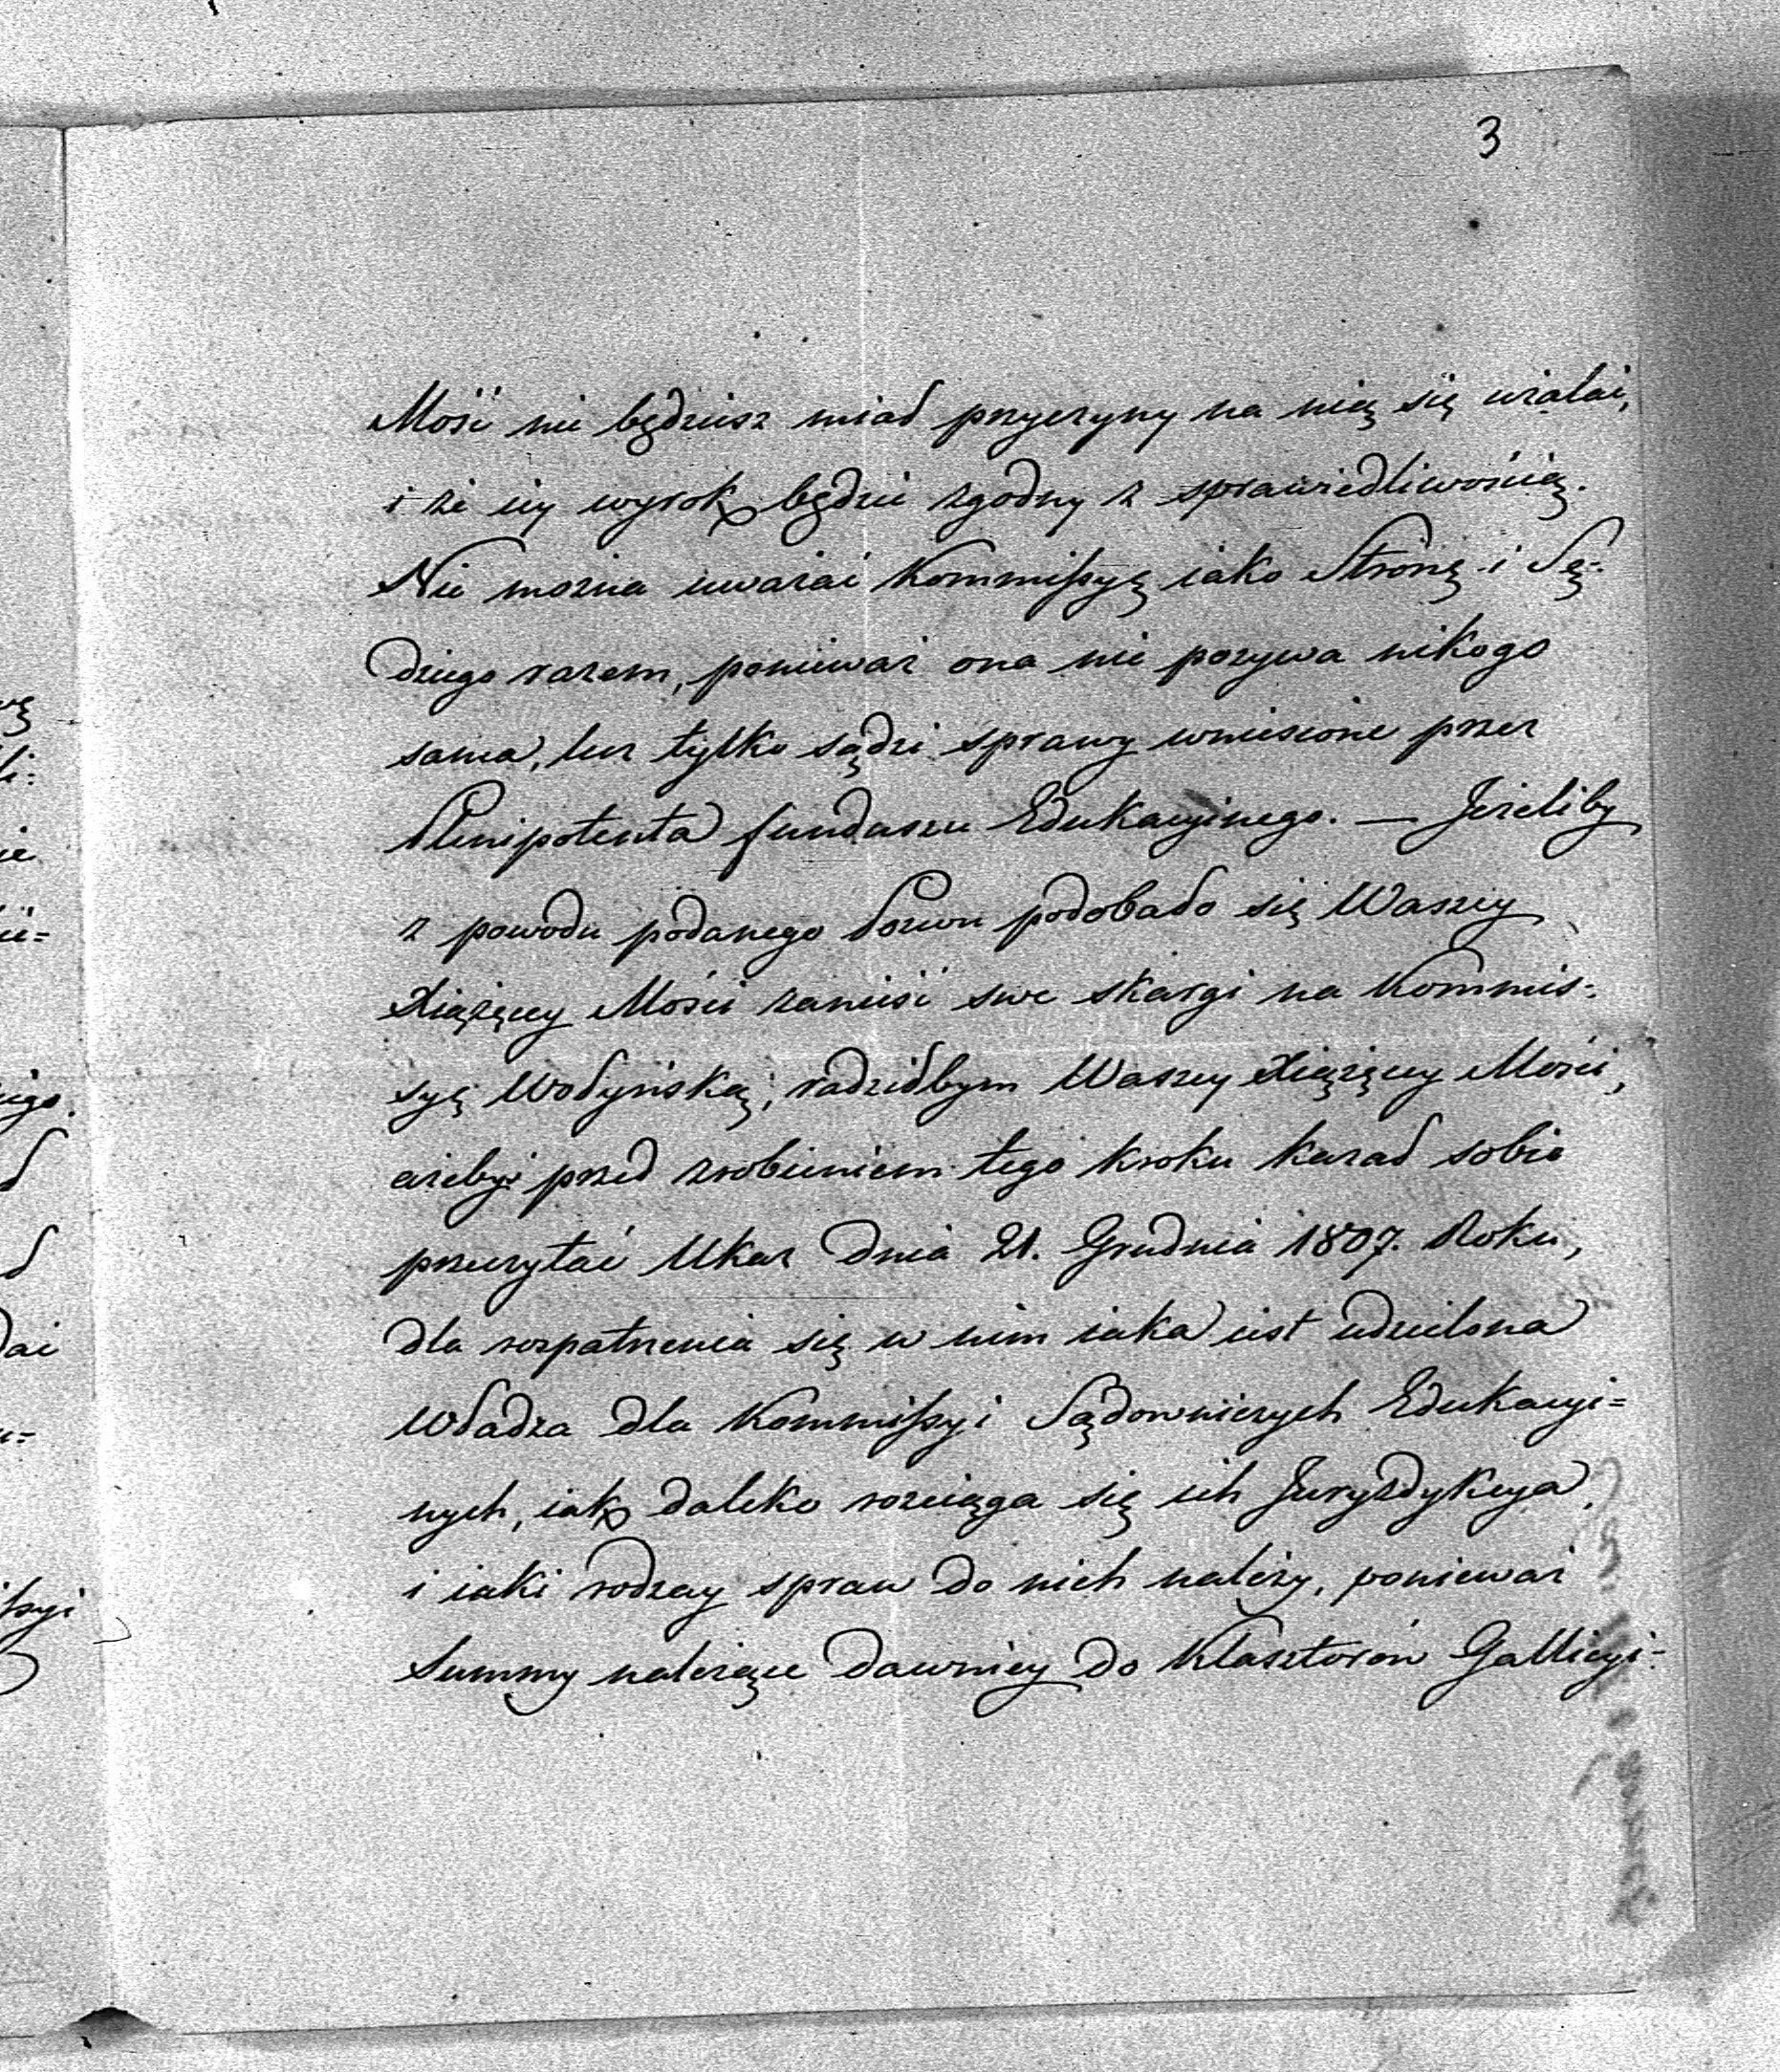 3
Mość nie będziesz miał przyczyny na nię się użalać,
i że iey wyrok będzie zgodny z sprawiedliwością.
Nie można uważać Kommissyę iako Stronę i Sę-
dziego razem, ponieważ ona nie pozywa nikogo
sama, lecz tylko sądzi sprawy wniesione przez
Plenipotenta funduszu Edukacyinego. — Jeżeliby
z powodu podanego Pozwu podobało się Waszey
Xiążęcey Mości zanieść swe skargi na Kommis-
syę Wołyńską, radziłbym Waszey Xiążęcey Mości,
ażebyś przed zrobieniem tego kroku kazał sobie
przeczytać Ukaz dnia 21. Grudnia 1807. Roku,
dla rozpatrzenia się w nim iaka iest udzielona
Władza dla Kommissyi Sądowniczych Edukacyi=
nych, iak daleko rozciąga się ich Juryzdykcya,
i iaki rodzay spraw do nich należy, ponieważ
Summy należące dawniey do Klasztorów Gallicyi-